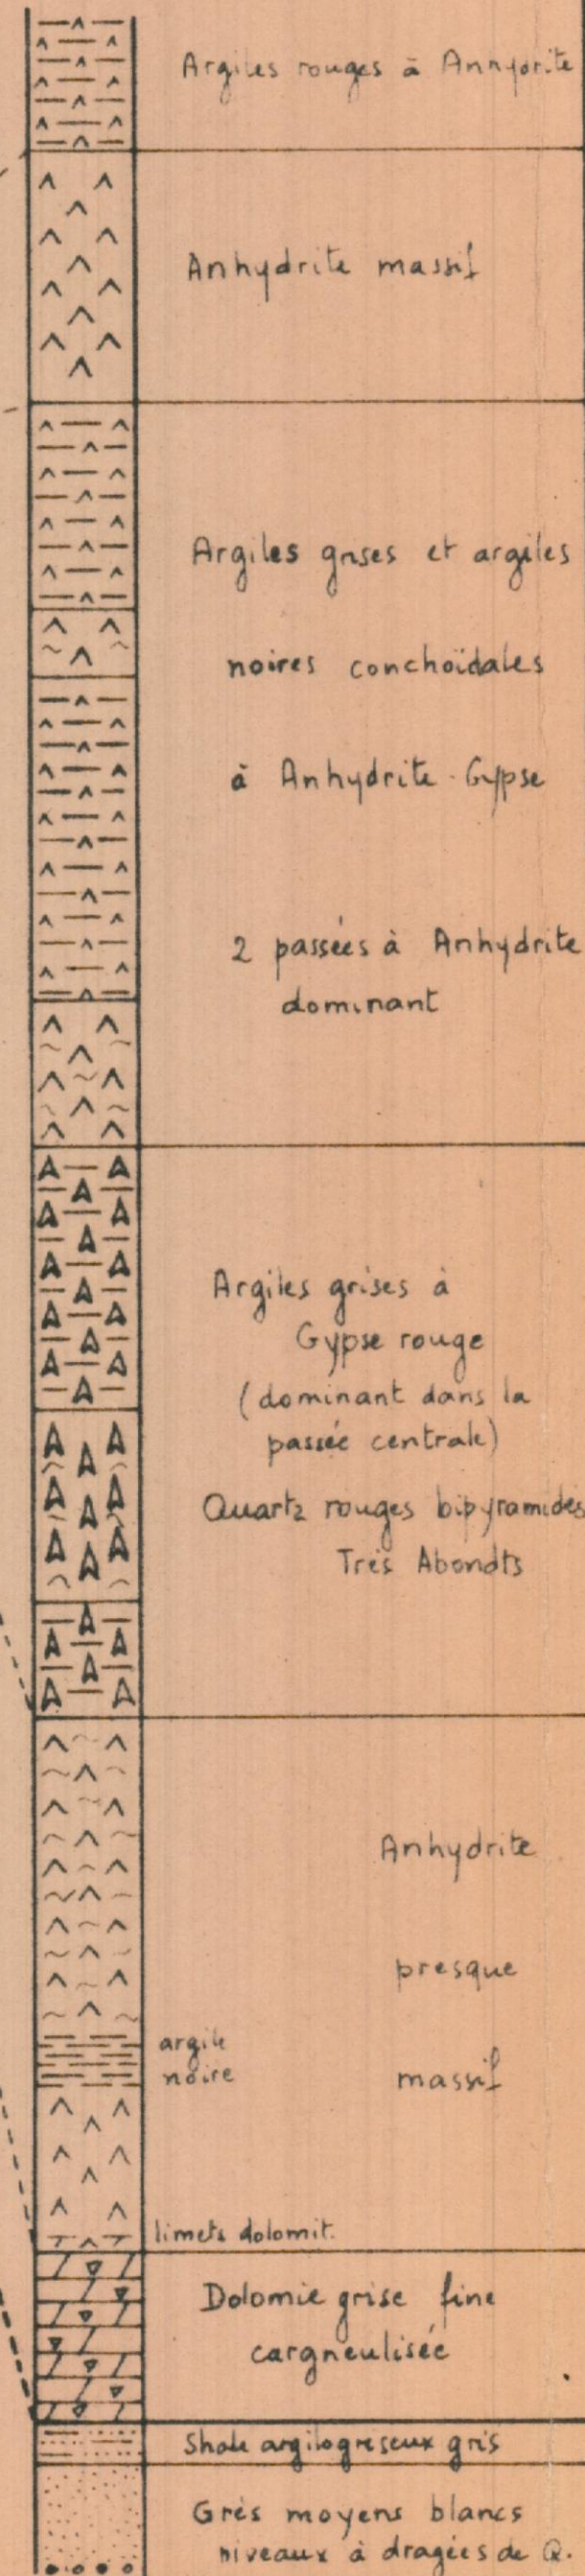 Argiles rouges à Anhydrite
Anhydrite massif
Argiles grises et argiles
noires conchoïdales
à Anhydrite-Gypse
2 passées à Anhydrite
dominant
Argiles grises à
Gypse rouge
(dominant dans la
passée centrale)
Quartz rouges bipyramides
Très Abondts
Anhydrite
presque
argile
noire
massif
limets dolomit.
Dolomie grise fine
cargneulisée
Shale argilogreseux gris
Grès moyens blancs
niveaux à dragées de Q.